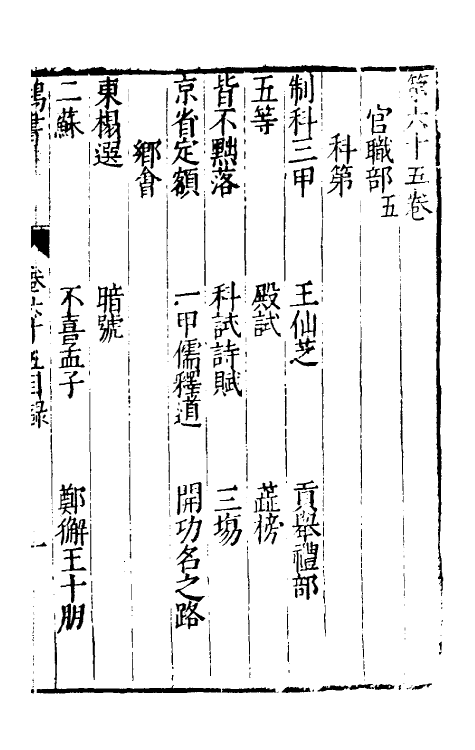 第六十五卷
官職部五
科第
制科三甲 王仙芝 貢舉禮部
五等 殿試 蕋榜
皆不黜落 科試詩賦 三塲
京省定額 一甲儒釋道 開功名之路
鄉會
東榻選 暗號
二蘇 不喜孟子 鄭獬王十朋
鴻書 卷六十五目録 一